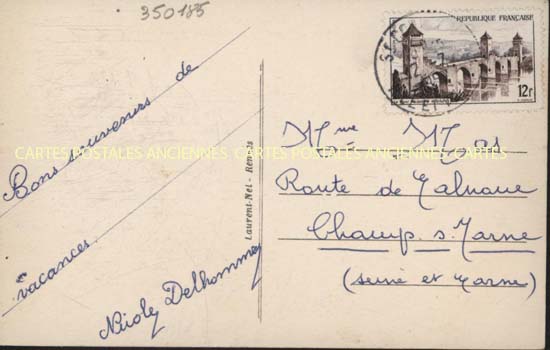 350185
Bons souvenirs de
vacances.
Nicole Delhommey
CARTES POSTALES ANCIENNES CARTES POSTALES ANCIENNES
Laurent-Nel - Rennes
REPUBLIQUE FRANÇAISE
12F
Mme
Route de
Champ s. Marne
(Seine et Marne)